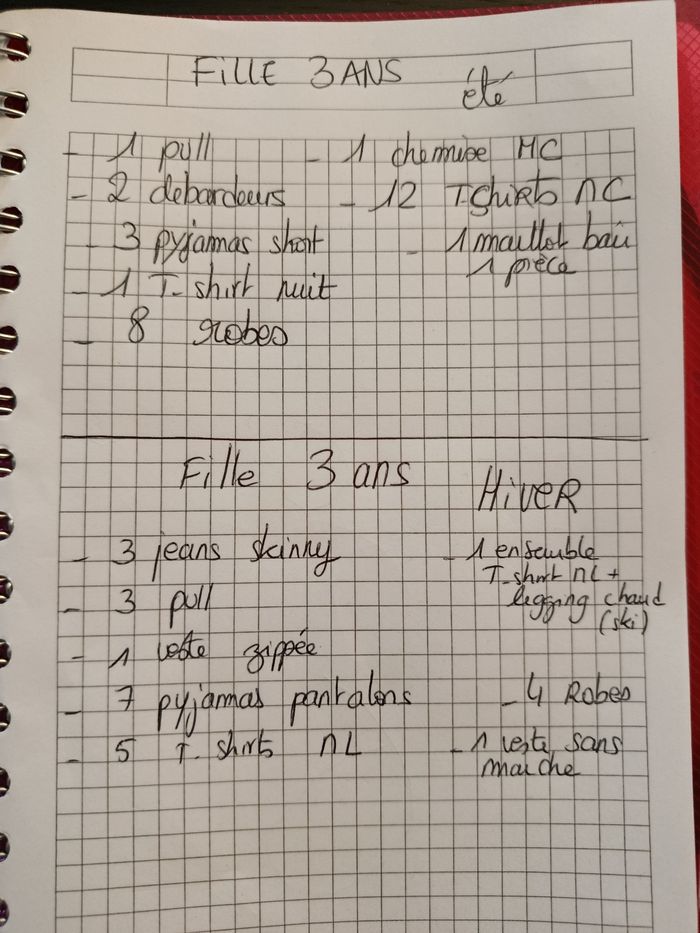 FILLE 3 ANS été
- 1 pull
- 2 debardeurs
- 3 pyjamas short
- 1 T-shirt nuit
- 8 robes
- 1 chemise MC
- 12 Tshirts MC
- 1 maillot bain
1 pièce
Fille 3 ans HiVER
- 3 jeans skinny
- 3 pull
- 1 veste zippée
- 7 pyjamas pantalons
- 5 T-shirts ML
- 1 ensemble
T-short ML +
legging chaud
(ski)
- 4 Robes
- 1 veste sans
manche